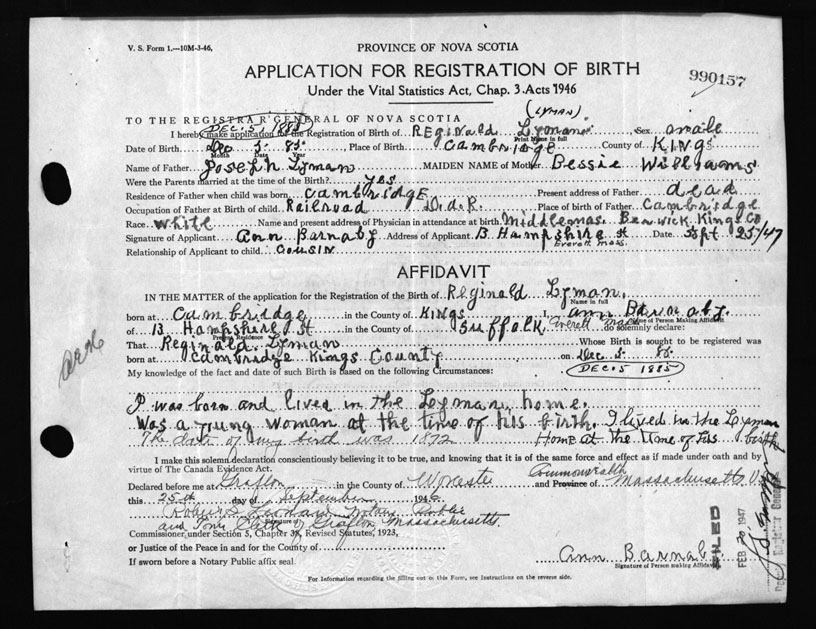 V. S. Form 1.—10M-3-46,
PROVINCE OF NOVA SCOTIA
APPLICATION FOR REGISTRATION OF BIRTH
990157
Under the Vital Statistics Act, Chap. 3. Acts 1946
(LYMAN)
TO THE REGISTRAR GENERAL OF NOVA SCOTIA
DEC. 5, 1885
I hereby make application for the Registration of Birth of Reginald Lyman, Sex male
Print Name in full
Date of Birth Dec 5. 85, Place of Birth Cambridge County of Kings
Month Date Year
Name of Father Joseph Lyman MAIDEN NAME of Mother Bessie Williams
Were the Parents married at the time of Birth? yes
Residence of Father when child was born Cambridge Present address of Father dead
Occupation of Father at Birth of child Railroad D.A.R. Place of birth of Father Cambridge
Race White Name and present address of Physician in attendance at birth Middlemas. Berwick Kings Co
Signature of Applicant Ann Barnaby Address of Applicant 13 Hampshire st Date Sept 25/47
Everett Mass.
Relationship of Applicant to child cousin
AFFIDAVIT
IN THE MATTER of the application for the Registration of the Birth of Reginald Lyman.
Name in full
born at Cambridge in the County of Kings I, Ann Barnaby.
Name of Person Making Affidavit
of 13 Hampshire St in the County of Suffolk Everett Mass do solemnly declare:
Present Residence
That Reginald Lyman Whose Birth is sought to be registered was
born at Cambridge Kings County on Dec 5. 85.
My knowledge of the fact and date of such Birth is based on the following Circumstances:
DEC. 5 1885
I was born and lived in the Lyman home.
Was a young woman at the time of his birth. I lived in the Lyman
The date of my birth was 1872 Home at the time of his birth
I make this solemn declaration conscientiously believing it to be true, and knowing that it is of the same force and effect as if made under oath and by
virtue of The Canada Evidence Act.
Commonwealth
Declared before me at Grafton in the County of Worcester and Province of Massachusetts, U.
this 25th day of September 194
Robert S. Leonard Notary Public
Signature of
and Town Clerk of Grafton, Massachusetts.
Commissioner under Section 5, Chapter 38, Revised Statutes, 1923,
or Justice of the Peace in and for the County of
Ann Barnaby
If sworn before a Notary Public affix seal.
Signature of Person making Affidavit
For Information regarding the filling out of this Form, see Instructions on the reverse side.
FILED
FEB 20 1947
Deputy Registrar General